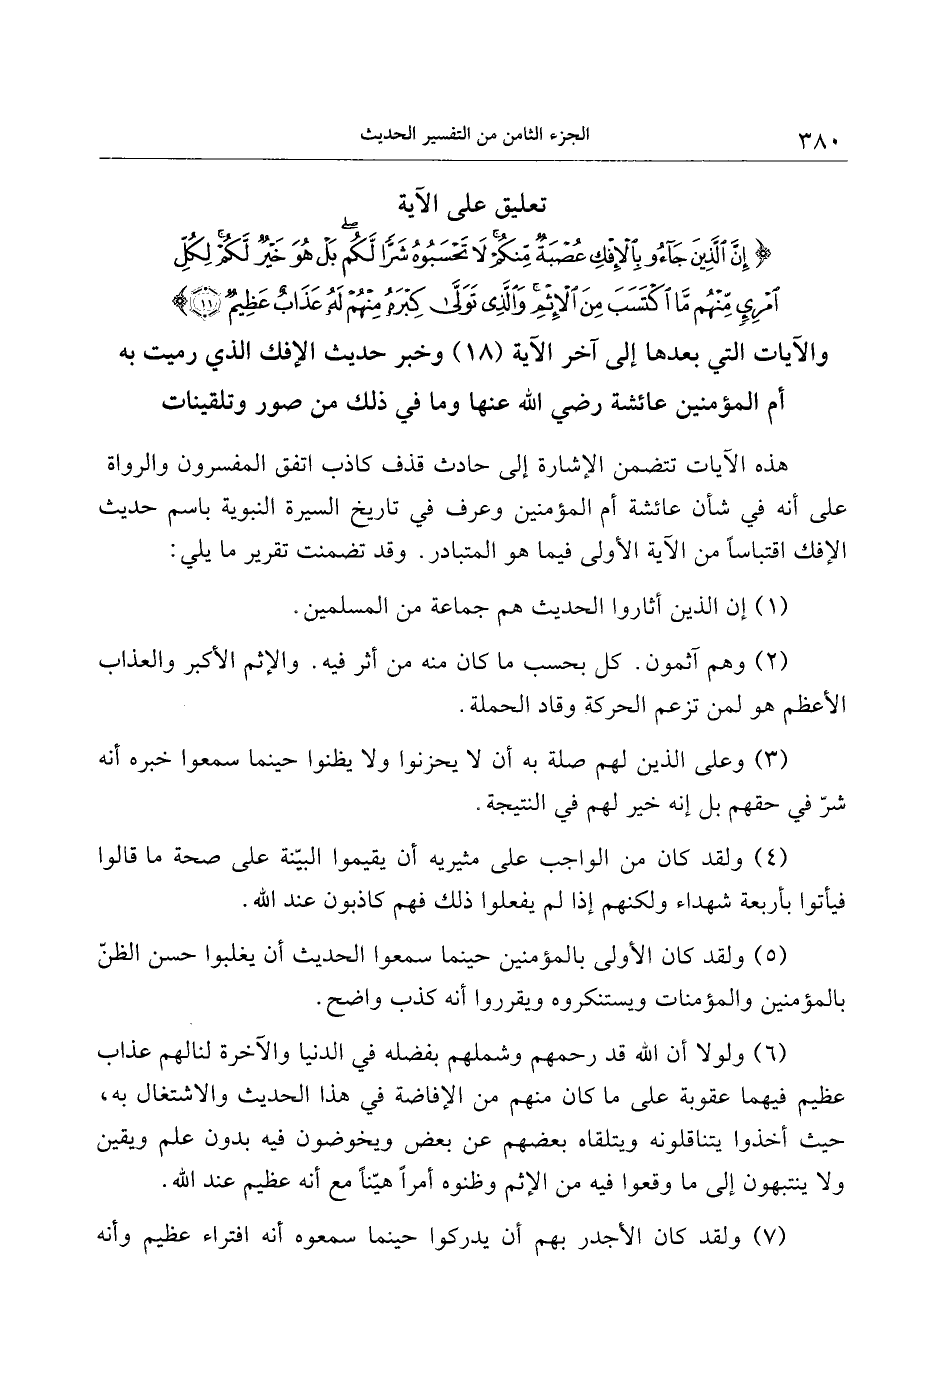 ٣٨٠
الجزء الثامن من التفسير الحديث
تعليق على الآية
﴿ إِنَّ ٱلَّذِينَ جَآءُو بِٱلْإِفْكِ عُصْبَةٌ مِّنكُمْ ۚ لَا تَحْسَبُوهُ شَرًّا لَّكُم ۖ بَلْ هُوَ خَيْرٌ لَّكُمْ ۚ لِكُلِّ
ٱمْرِيٍ مِّنْهُم مَّا ٱكْتَسَبَ مِنَ ٱلْإِثْمِ ۚ وَٱلَّذِى تَوَلَّىٰ كِبْرَهُۥ مِنْهُمْ لَهُۥ عَذَابٌ عَظِيمٌ ﴿١١﴾ ﴾
والآيات التي بعدها إلى آخر الآية (١٨) وخبر حديث الإفك الذي رميت به
أم المؤمنين عائشة رضي الله عنها وما في ذلك من صور وتلقينات
هذه الآيات تتضمن الإشارة إلى حادث قذف كاذب اتفق المفسرون والرواة
على أنه في شأن عائشة أم المؤمنين وعرف في تاريخ السيرة النبوية باسم حديث
الإفك اقتباساً من الآية الأولى فيما هو المتبادر. وقد تضمنت تقرير ما يلي:
(١) إن الذين أثاروا الحديث هم جماعة من المسلمين.
(٢) وهم آثمون. كل بحسب ما كان منه من أثر فيه. والإثم الأكبر والعذاب
الأعظم هو لمن تزعم الحركة وقاد الحملة.
(٣) وعلى الذين لهم صلة به أن لا يحزنوا ولا يظنوا حينما سمعوا خبره أنه
شرّ في حقهم بل إنه خير لهم في النتيجة.
(٤) ولقد كان من الواجب على مثيريه أن يقيموا البيّنة على صحة ما قالوا
فيأتوا بأربعة شهداء ولكنهم إذا لم يفعلوا ذلك فهم كاذبون عند الله.
(٥) ولقد كان الأولى بالمؤمنين حينما سمعوا الحديث أن يغلبوا حسن الظنّ
بالمؤمنين والمؤمنات ويستنكروه ويقرروا أنه كذب واضح.
(٦) ولولا أن الله قد رحمهم وشملهم بفضله في الدنيا والآخرة لنالهم عذاب
عظيم فيهما عقوبة على ما كان منهم من الإفاضة في هذا الحديث والاشتغال به،
حيث أخذوا يتناقلونه ويتلقاه بعضهم عن بعض ويخوضون فيه بدون علم ويقين
ولا ينتبهون إلى ما وقعوا فيه من الإثم وظنوه أمراً هيّناً مع أنه عظيم عند الله.
(٧) ولقد كان الأجدر بهم أن يدركوا حينما سمعوه أنه افتراء عظيم وأنه